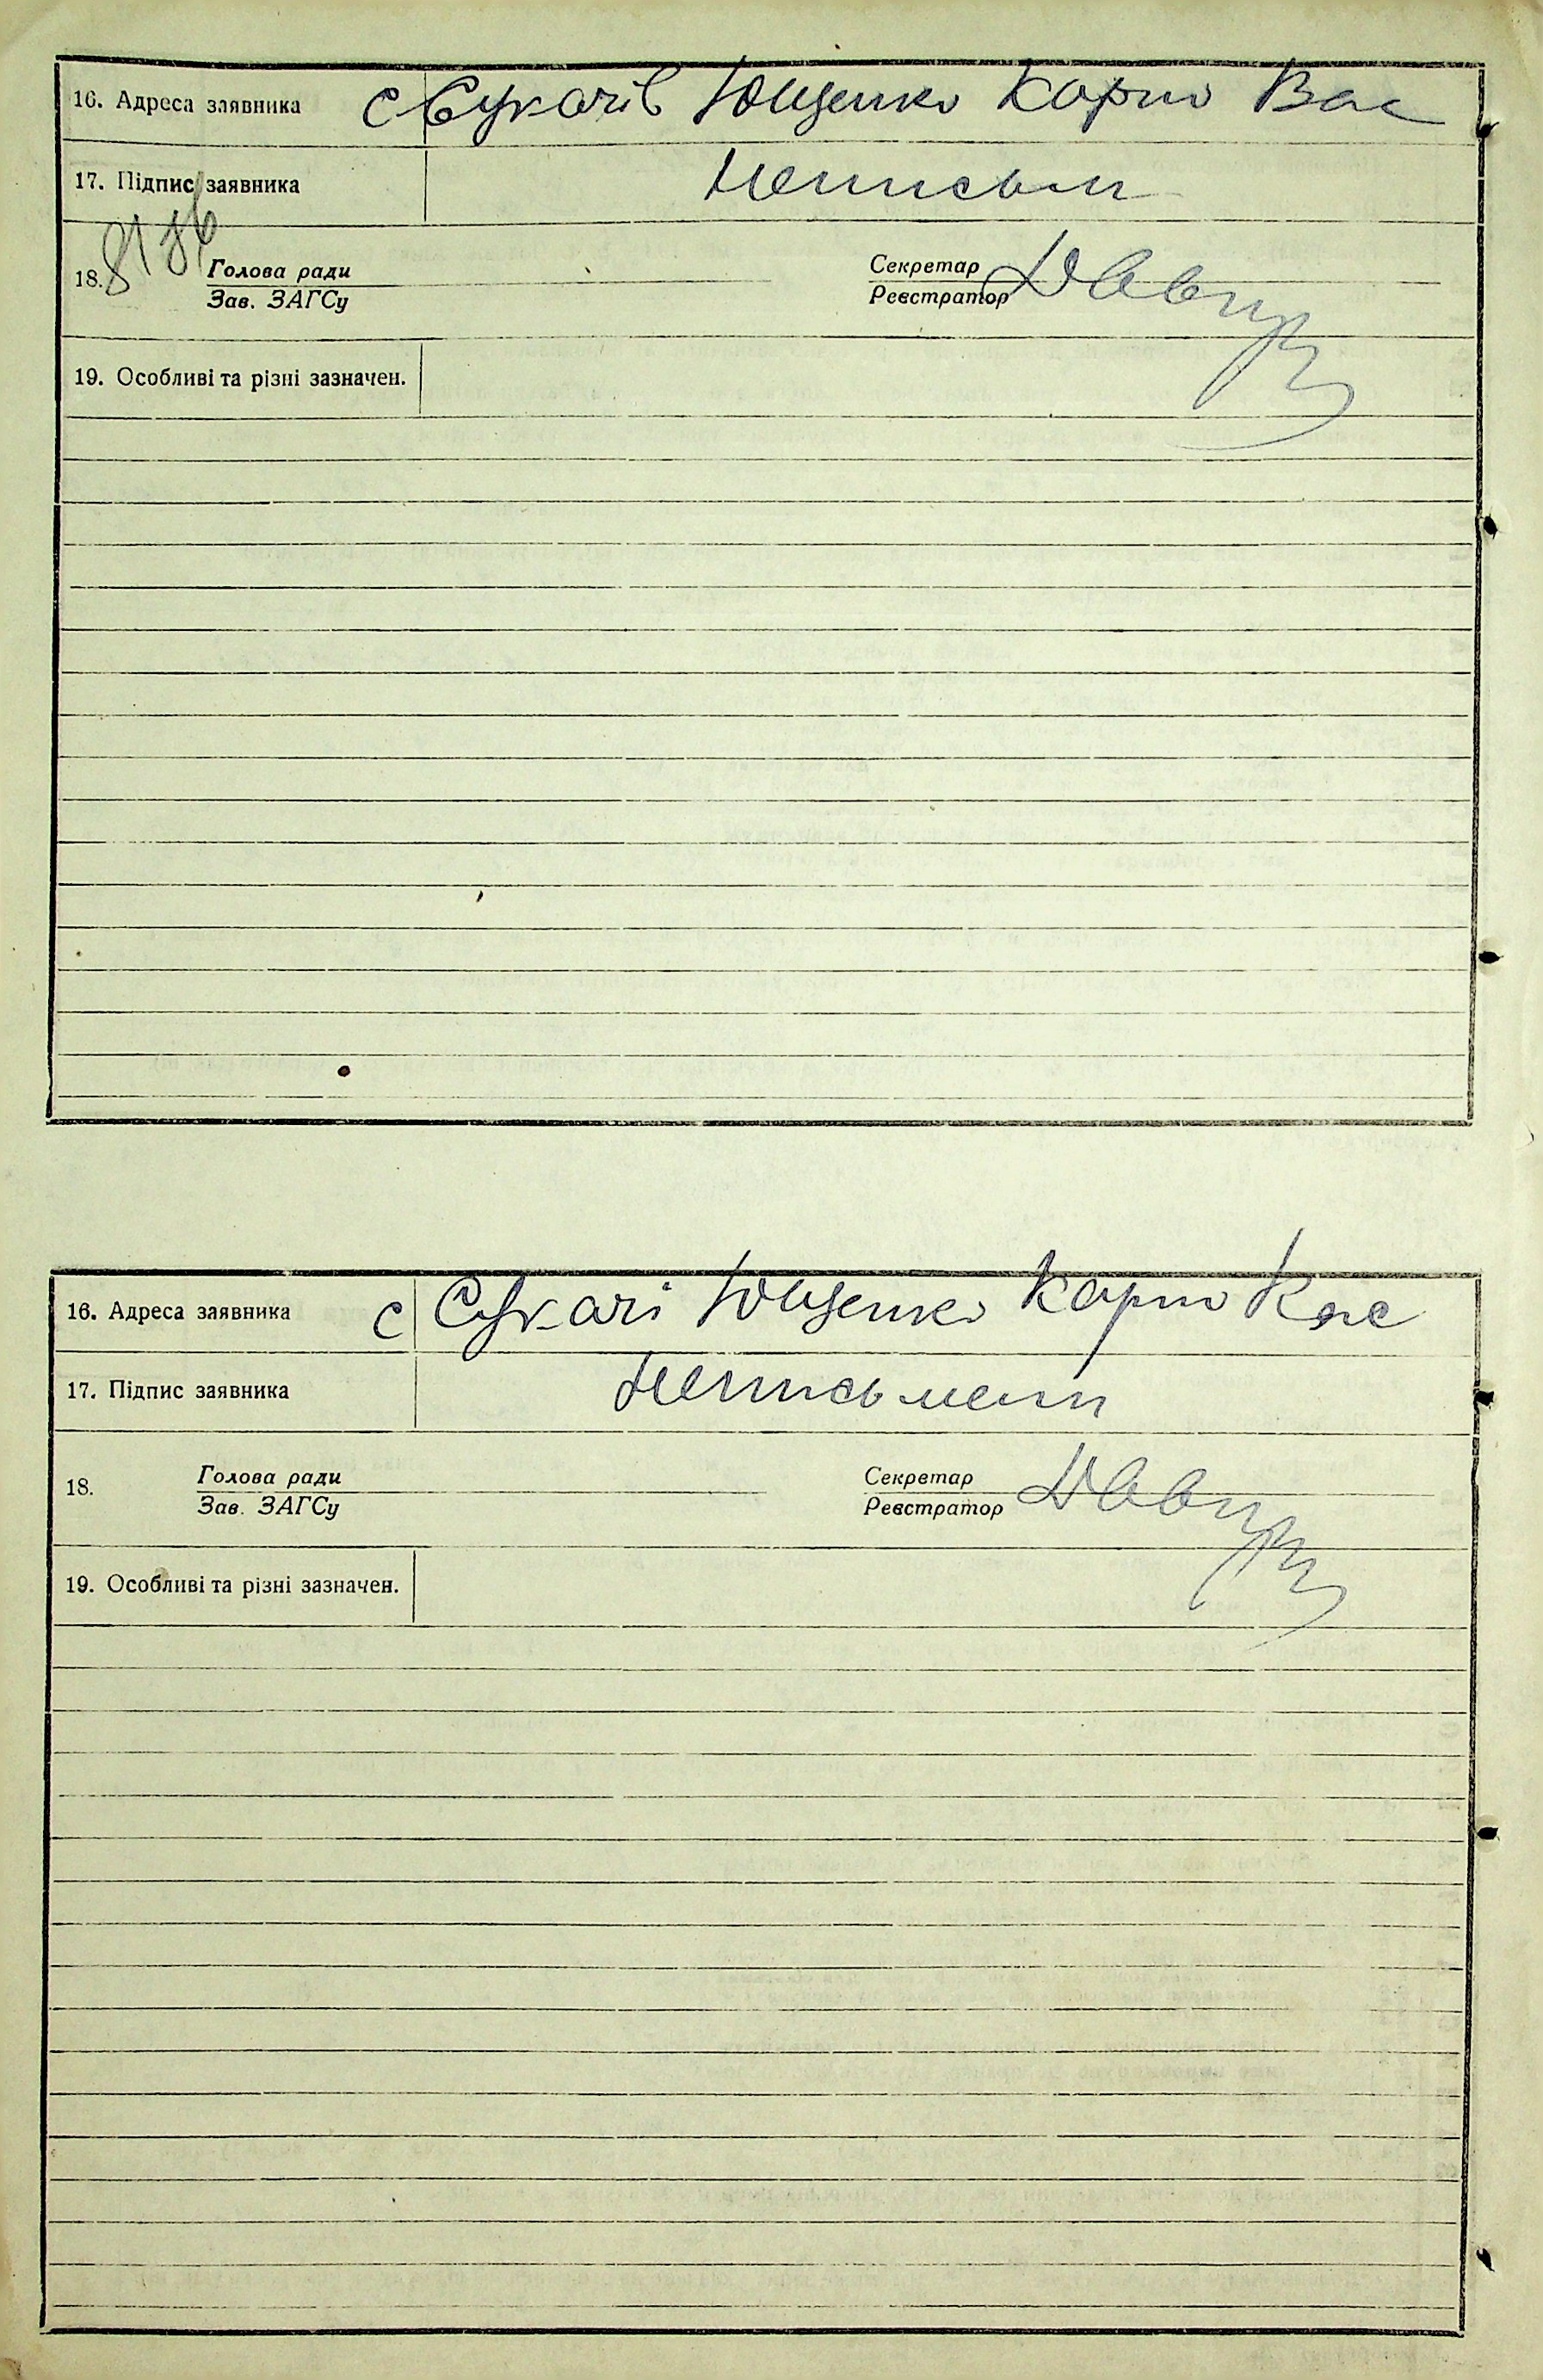 16. Адреса заявника с Сукачів Ющенко Карпо Вас
17. Підпис заявника Неписьм
18. Голова ради Секретар
Зав. ЗАГСу Реєстратор
19. Особливі та різні зазначен.
16. Адреса заявника с Сукачі Ющенко Карпо Кас
17. Підпис заявника Неписьмен
18. Голова ради Секретар
Зав. ЗАГСу Реєстратор
19. Особливі та різні зазначен.